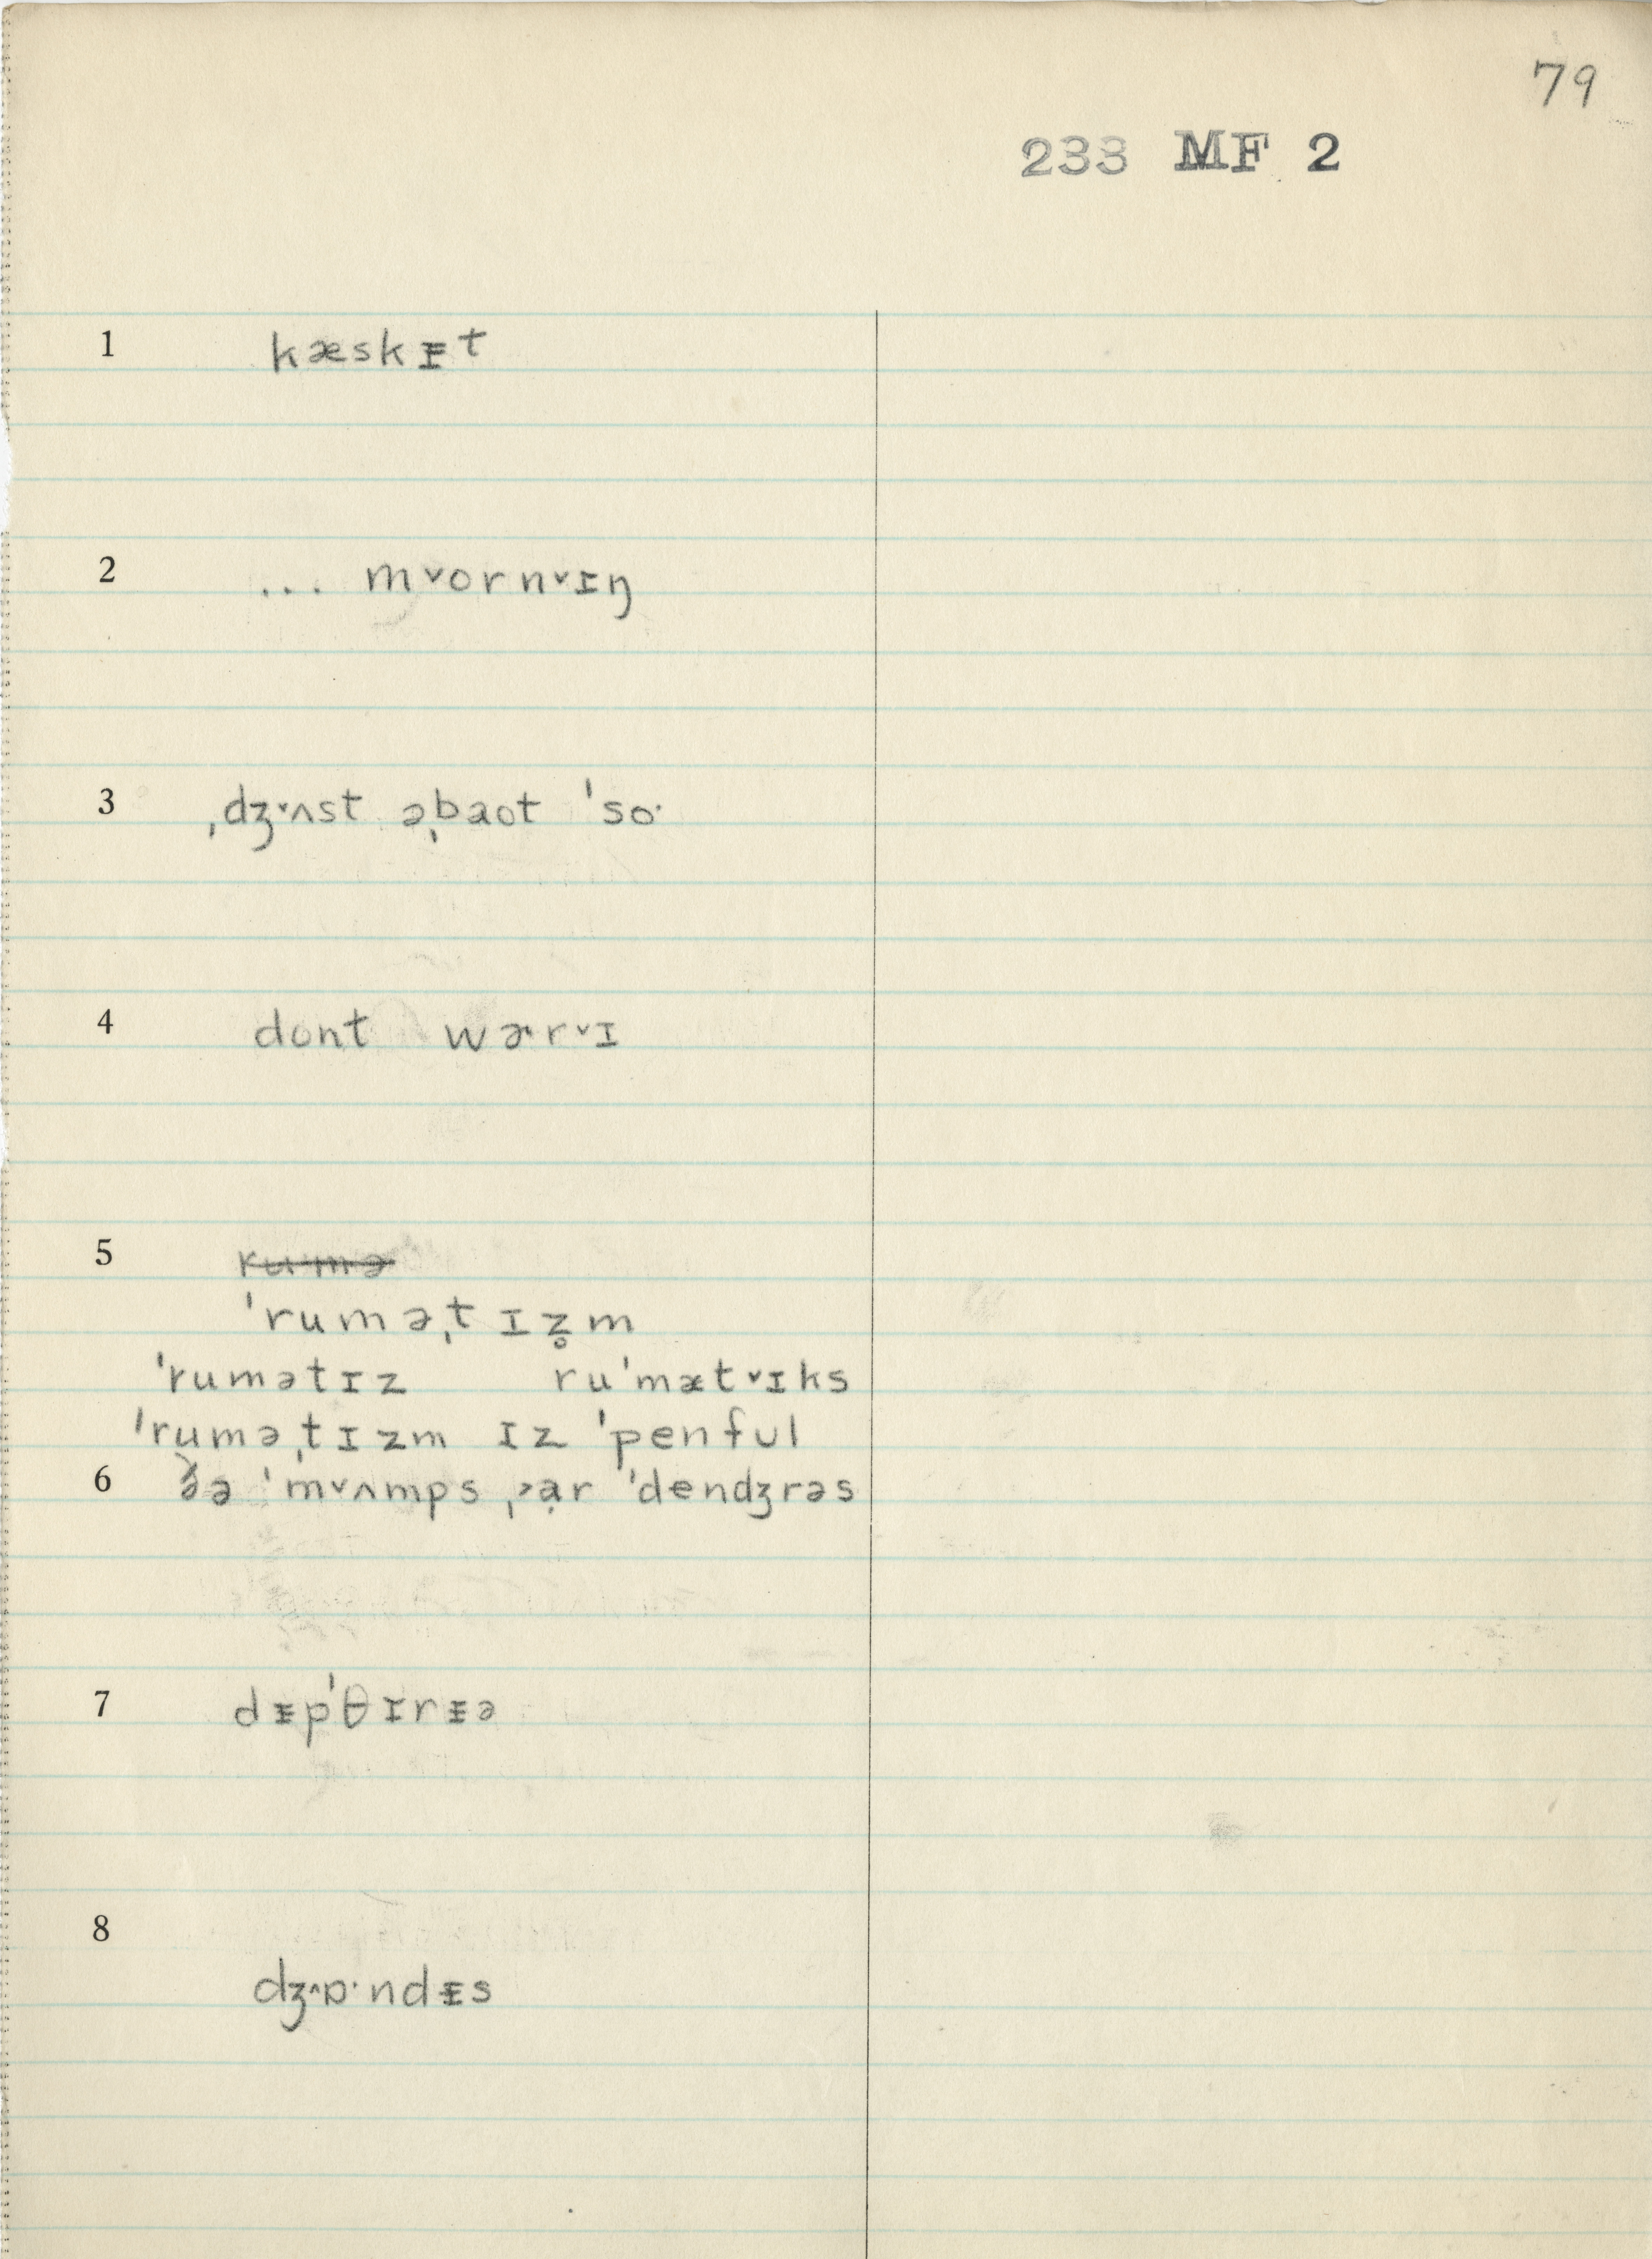 79
233 MF 2
1 kæskᵻt
2 ... m˅orn˅ɪŋ
3 ˌdʒ˅ʌst əˌbaot ˈso·
4 dont wɚr˅ɪ
5 rumə
ˈruməˌtɪz̥m
ˈrumətɪz ruˈmæt˅ɪks
ˈruməˌtɪzm ɪz ˈpenful
6 ðə ˈm˅ʌmps ˌ˃ạr ˈdendʒrəs
7 dᵻpˈθɪrᵻə
8 dʒ˄ɒ·ndᵻs